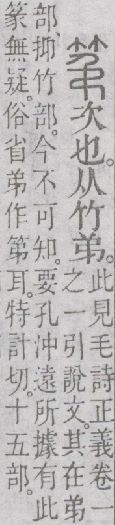 次也。从竹弟。此見毛詩正義卷一
之一引說文。其在弟
部、抑竹部。今不可知。要孔沖遠所據有此
篆無疑。俗省弟作第耳。特計切。十五部。